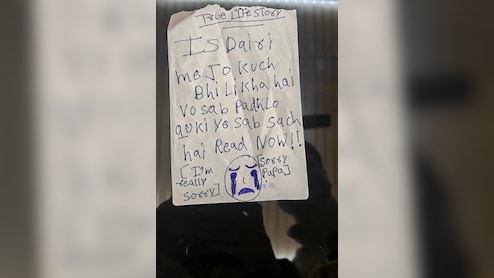 True Life Story
Is Dairi
me Jo kuch
Bhi Likha hai
Vo sab Padh Lo
quki Ye sab sach
hai Read Now!!
[I'm really sorry]
[sorry Papa]